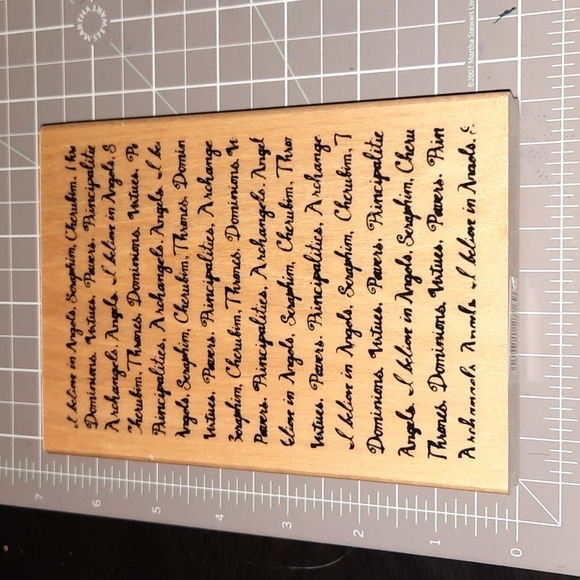 I believe in Angels, Seraphim, Cherubim, Thro
Dominions, Virtues, Powers, Principalitie
Archangels, Angels. I believe in Angels, S
Cherubim, Thrones, Dominions, Virtues, Po
Principalities, Archangels, Angels. I be
Angels, Seraphim, Cherubim, Thrones, Domin
Virtues, Powers, Principalities, Archange
Seraphim, Cherubim, Thrones, Dominions, Vi
Powers, Principalities, Archangels, Angel
believe in Angels, Seraphim, Cherubim, Thron
Virtues, Powers, Principalities, Archange
I believe in Angels, Seraphim, Cherubim, T
Dominions, Virtues, Powers, Principalitie
Angels. I believe in Angels, Seraphim, Cheru
Thrones, Dominions, Virtues, Powers, Prin
Archangels, Angels. I believe in Angels, S
©2007 Martha Stewart Liv
7 6 5 4 3 2 1 0